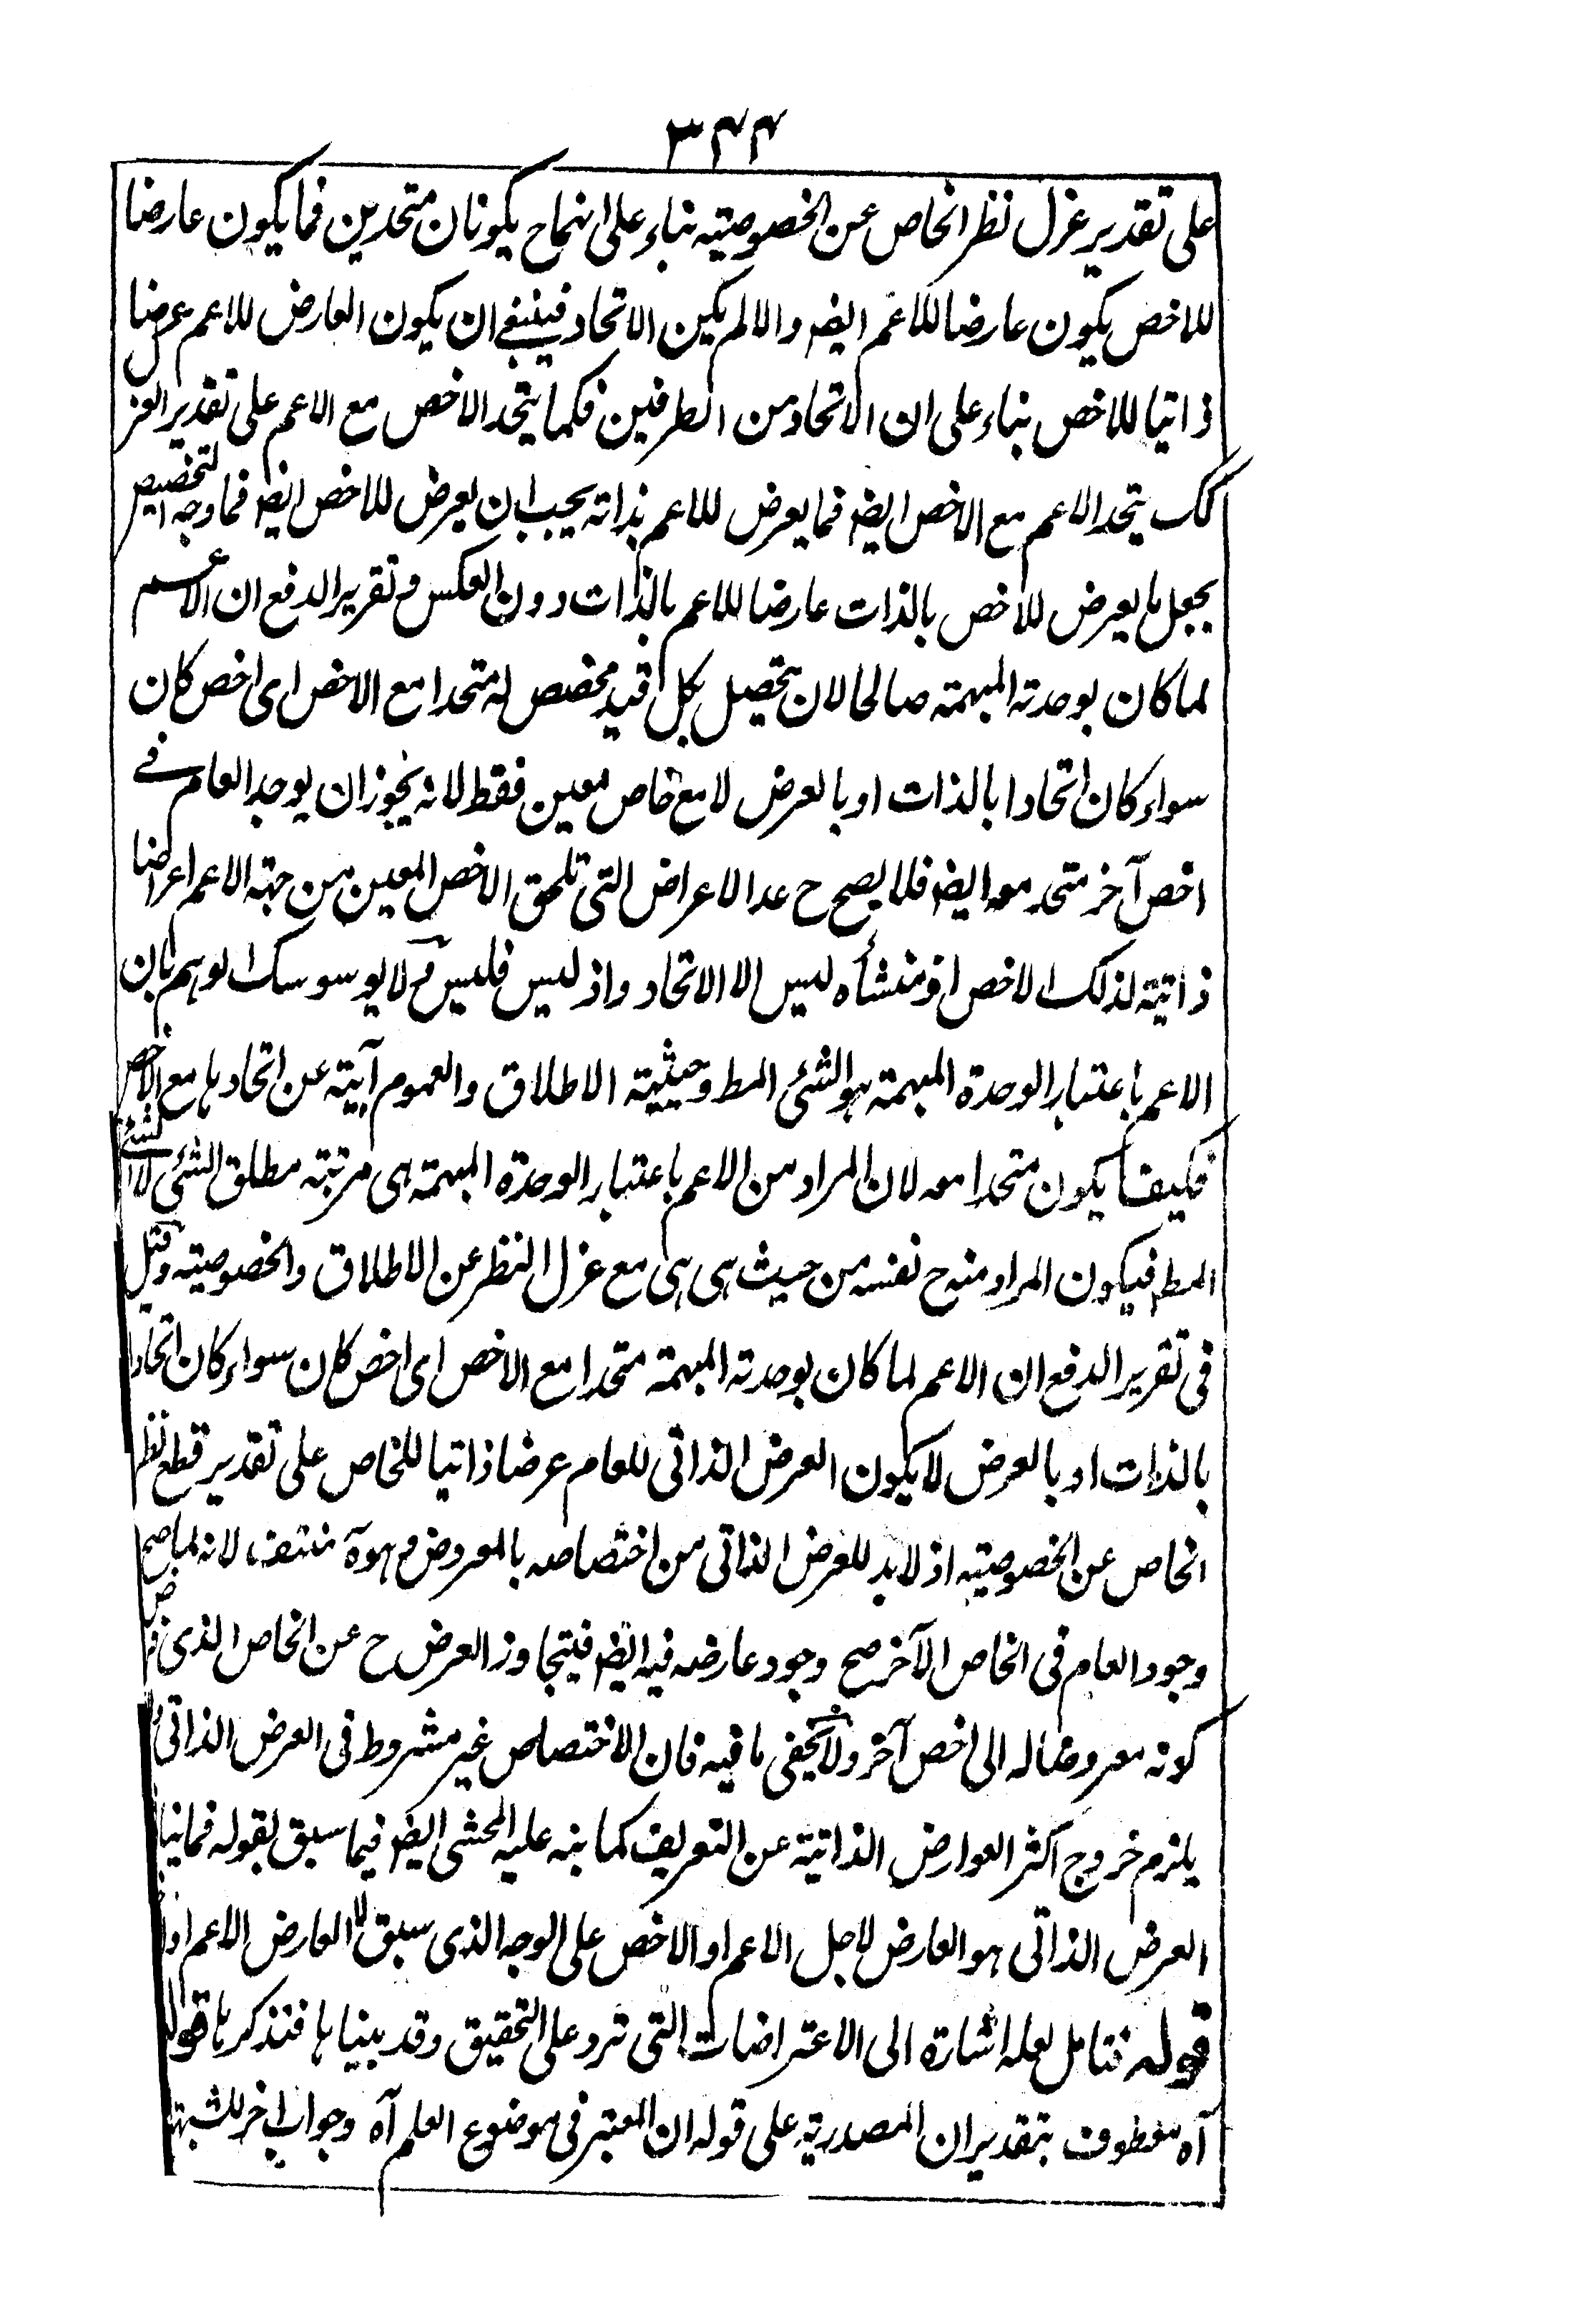 ٣٤٤
على تقدير عزل نظر الخاص عن الخصوصية بناء على انهما ح يكونان متحدين فما يكون عارضا
للاخص يكون عارضا للاعم ايضا والا لم يكن الاتحاد فينبغي ان يكون العارض للاعم عرضا
ذاتيا للاخص بناء على ان الاتحاد من الطرفين فكما يتحد الاخص مع الاعم على تقدير العزل
كك يتحد الاعم مع الاخص ايضا فما يعرض للاعم بذاته يجب ان يعرض للاخص ايضا فما وجه التخصيص
بجعل ما يعرض للاخص بالذات عارضا للاعم بالذات دون العكس وتقرير الدفع ان الاعم
لما كان بوحدته المبهمة صالحا لان يتحصل بكل قيد مخصص له متحدا مع الاخص اى اخص كان
سواء كان اتحادا بالذات او بالعرض لا مع خاص معين فقط لانه يجوز ان يوجد العام في
اخص آخر متحد معه ايضا فلا يصح ح عد الاعراض التى تلحق الاخص المعين من جهة الاعم اعراضا
ذاتية لذلك الاخص اذ منشأه ليس الا الاتحاد واذ ليس فليس و لا يوسوسك الوهم بان
الاعم باعتبار الوحدة المبهمة هو الشئى المط وحيثية الاطلاق والعموم آبية عن اتحادها مع الاخص
فكيف يكون متحدا معه لان المراد من الاعم باعتبار الوحدة المبهمة هى مرتبة مطلق الشئى لا الشئى
المط فيكون المراد منه ح نفسه من حيث هى هى مع عزل النظر عن الاطلاق والخصوصية وقيل
فى تقرير الدفع ان الاعم لما كان بوحدته المبهمة متحدا مع الاخص اى اخص كان سواء كان اتحادا
بالذات او بالعرض لا يكون العرض الذاتى للعام عرضا ذاتيا للخاص على تقدير قطع نظر
الخاص عن الخصوصية اذ لا بد للعرض الذاتى من اختصاصه بالمعروض و هو ة منتف لانه لما صح
وجود العام فى الخاص الآخر صح وجود عارضه فيه ايضا فيتجاوز العرض ح عن الخاص الذى فرض
كونه معروضا له الى اخص آخر ولا يخفى ما فيه فان الاختصاص غير مشروط فى العرض الذاتى
يلزم خروج اكثر العوارض الذاتية عن التعريف كما نبه عليه المحشى ايضا فيما سبق بقوله
العرض الذاتى هو العارض لاجل الاعم او الاخص على الوجه الذى سبق لا العارض الاعم او
قوله فتامل لعله اشارة الى الاعتراضات التى ترد على التحقيق وقد بيناها فتذكرها قوله
آه معطوف بتقدير ان المصدرية على قوله ان المعتبر فى موضوع العلم آه وجواب اخر للشبهة